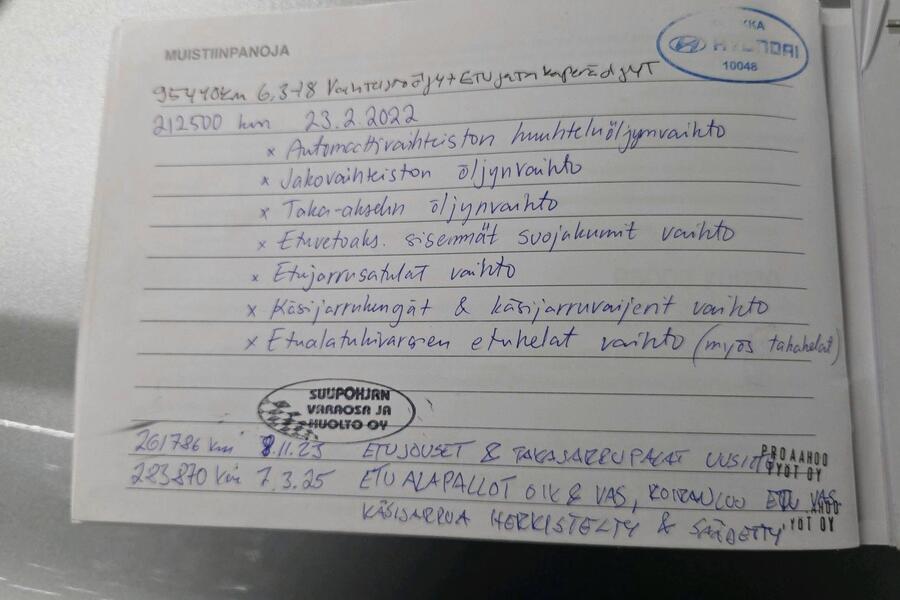 MUISTIINPANOJA
KKA
HYUNDAI
10048
95440km 6,3-18 Vaihteistoöljyt+ETU ja TakaperäÖljyT
212500 km 23.2.2022
x Automaattivaihteiston huuhteluöljynvaihto
x Jakovaihteiston öljynvaihto
x Taka-akselin öljynvaihto
x Etuvetoaks. sisemmät suojakumit vaihto
x Etujarrusatulat vaihto
x Käsijarrukengät & käsijarruvaijerit vaihto
x Etualatukivarsien etuhelat vaihto (myös takahelat)
SUUPOHJAN
VARAOSA JA
HUOLTO OY
261786 km 8.11.23 ETUJOUSET & TAKAJARRUPALAT UUSITTU
PROAAHOO
YÖT OY
283870 km 7.3.25 ETU ALAPALLOT OIK & VAS, KOIRANLUU ETU VAS
AHOO
KÄSIJARRUA HERKISTELTY & SÄÄDETTY
YÖT OY